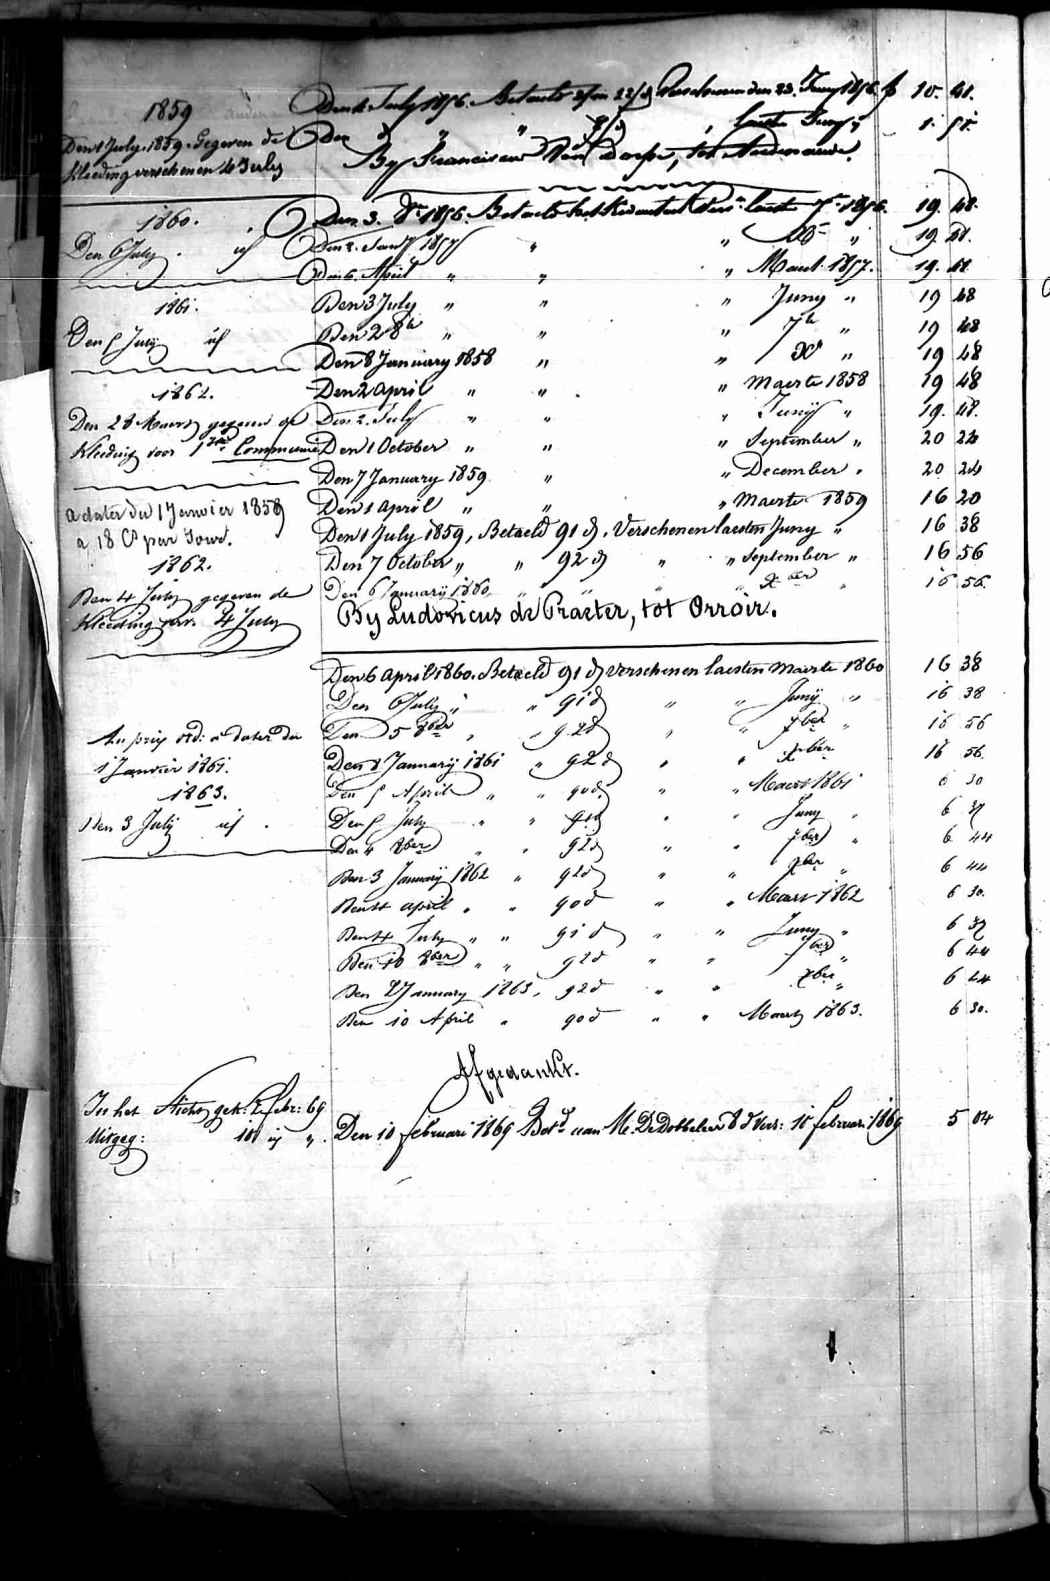 1859
Den 1 July 1859. Gegeven de
Kleeding verschenen 4 July
1860.
Den 6 July id
1861.
Den 5 July id
1862.
Den 28 Maert gegeven de
Kleeding voor 1ste Communie
a dater du 1 Janvier 1859
a 18 Cs par Jour.
1862.
Den 4 July gegeven de
Kleeding ver. 4 July
Au prix ord: a dater du
1 Janvier 1861.
1863.
Den 3 July id
In het Sticht gek: 2 Febr: 69
Uitgeg: 10 id "
Den 4 July 1856. Betaeld Verschenen den 23. Juny 1856 f 10. 41.
Den " " laest Juny " 1. 51.
By Franciscus Van Dorpe, tot
Den 3. 8r 1856. Betaeld het Kwartael Vers. laest 7r 1856. 19. 48.
Den 2. Jany 1857 " " Xr " 19. 48.
Den 6. April " " " Maert 1857. 19. 48
Den 3 July " " " Juny " 19 48
Den 2 8r " " " 7r " 19 48
Den 8 January 1858 " " Xr " 19 48
Den 2 April " " " Maerte 1858 19 48
Den 2. July " " " Juny " 19. 48.
Den 1 October " " " September " 20 24
Den 7 January 1859 " " December " 20 24
Den 1 April " " " Maerte 1859 16 20
Den 1 July 1859, Betaeld 91 d. Verschenen laesten Juny " 16 38
Den 7 October " " 92 d " " September " 16 56
Den 6 January 1860. " " " " Xber " 16 56.
By Ludovicus de Praeter, tot Orroir.
Den 6 April 1860. Betaeld 91 d verschenen laesten Maerte 1860 16 38
Den 6 July " " 91 d " " Juny " 16 38
Den 5 8ber " " 92 d " " 7ber " 16 56
Den 8 January 1861 " 92 d " " Xber 16 56.
Den 5 April " " 90 d " " Maert 1861 6 30
Den 5 July " " 91 d " " Juny " 6 37
Den 4 8ber " " 92 d " " 7ber " 6 44
Den 3 January 1862 " 92 d " " Xber " 6 44
Den 4 April " " 90 d " " Maert 1862 6 30.
Den 4 July " " 91 d " " Juny " 6 37
Den 10 8ber " " 92 d " " 7ber " 6 44
Den 2 January 1863. 92 d " " Xber " 6 44
Den 10 April " 90 d " " Maert 1863. 6 30.
Afgedankt.
Den 10 februari 1869 Betd aan M. De Dobbeleer 8 d vers: 10 februari 1869 5 04